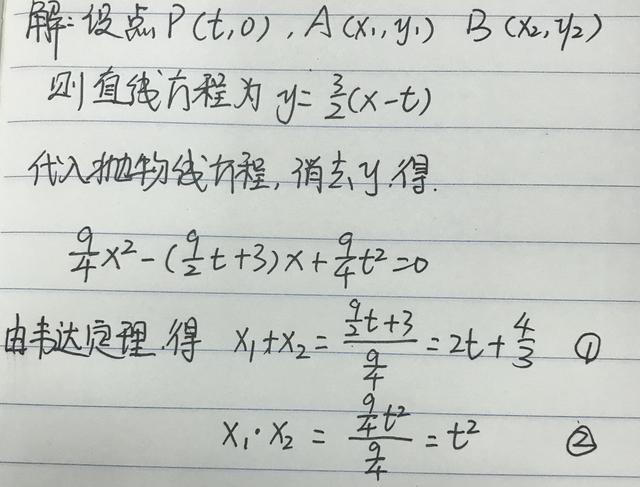 解：设点 P(t,0), A(x₁,y₁) B(x₂,y₂)
则直线方程为 y=3/2(x-t)
代入抛物线方程,消去y.得.
9/4x²-(9/2t+3)x+9/4t²=0
由韦达定理.得 x₁+x₂=(9/2t+3)/(9/4)=2t+4/3 ①
x₁·x₂=(9/4t²)/(9/4)=t² ②